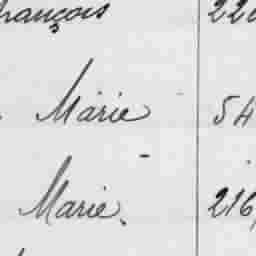 François
Marie 54
Marie. 216